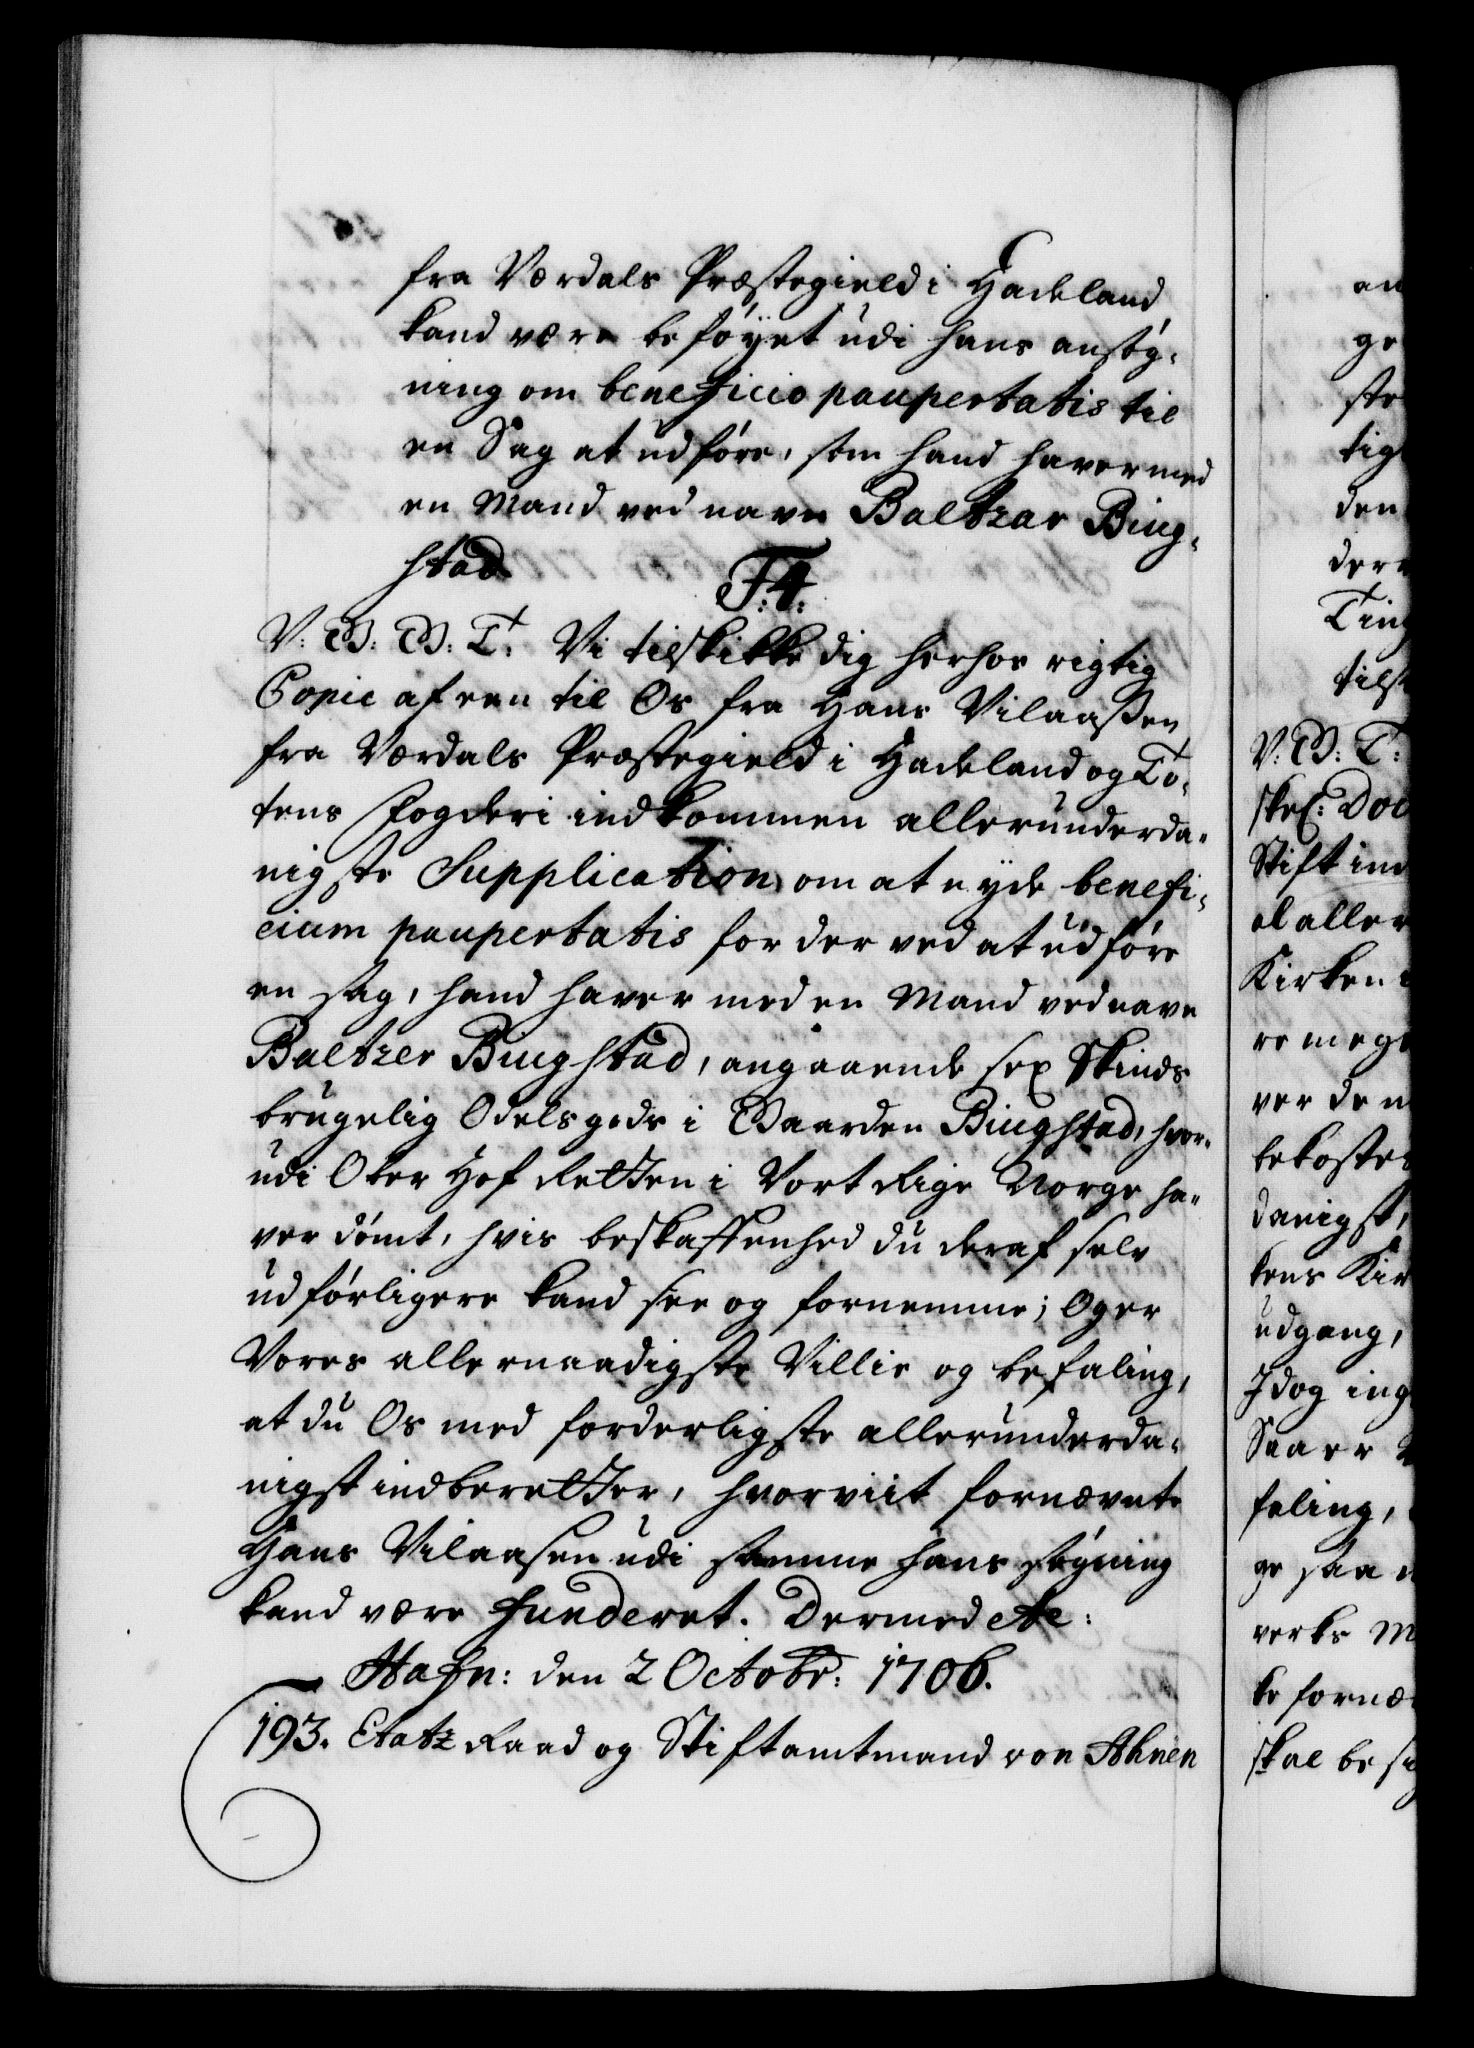 fra Værdals Præstegield i Hadeland
kand være beføyet udi hans ansøg-
ning om beneficio paupertatis til
en Sag at udføre, som hand haver med
en Mand ved navn Baltzar Biug-
stad
F: 4:
V: G: G: T: Vi tilskikke dig herhos rigtig
Copie af een til Os fra Hans Vilaaßen
fra Værdals Præstegield i Hadeland og To-
tens Fogderi indkommen allerunderda-
nigste Supplication om at nyde benefi-
cium paupertatis for der ved at udføre
en sag, hand haver med en Mand ved navn
Baltzer Biugstad, angaaende sex Skinds
brugelig Odelsgods i Gaarden Biugstad, hvor-
udi Ober Hof Retten i Vort Rige Norge ha-
ver dømt, hvis beskaffenhed du deraf selv
udførligere kand see og fornemme; Og er
Vores allernaadigste Villie og befaling,
at du Os med forderligste allerunderda-
nigst indberetter, hvorviit fornævnte
Hans Vilaasen udi samme hans søgning
kand være funderet. Dermed etc:
Hafn: den 2 Octobr: 1706.
193. Etatz Raad og Stiftamtmand von Ahnen
an
ge
ste
tig
den
der
Tin
tils
V: G: T:
skel: Doc
Stift in
al aller
Kirken
re meg
ver den
bekoste
danigst,
kens Kir
udgang,
Jdog ing
Saa er
faling,
ge saa
verks M
ke fornæ
skal be